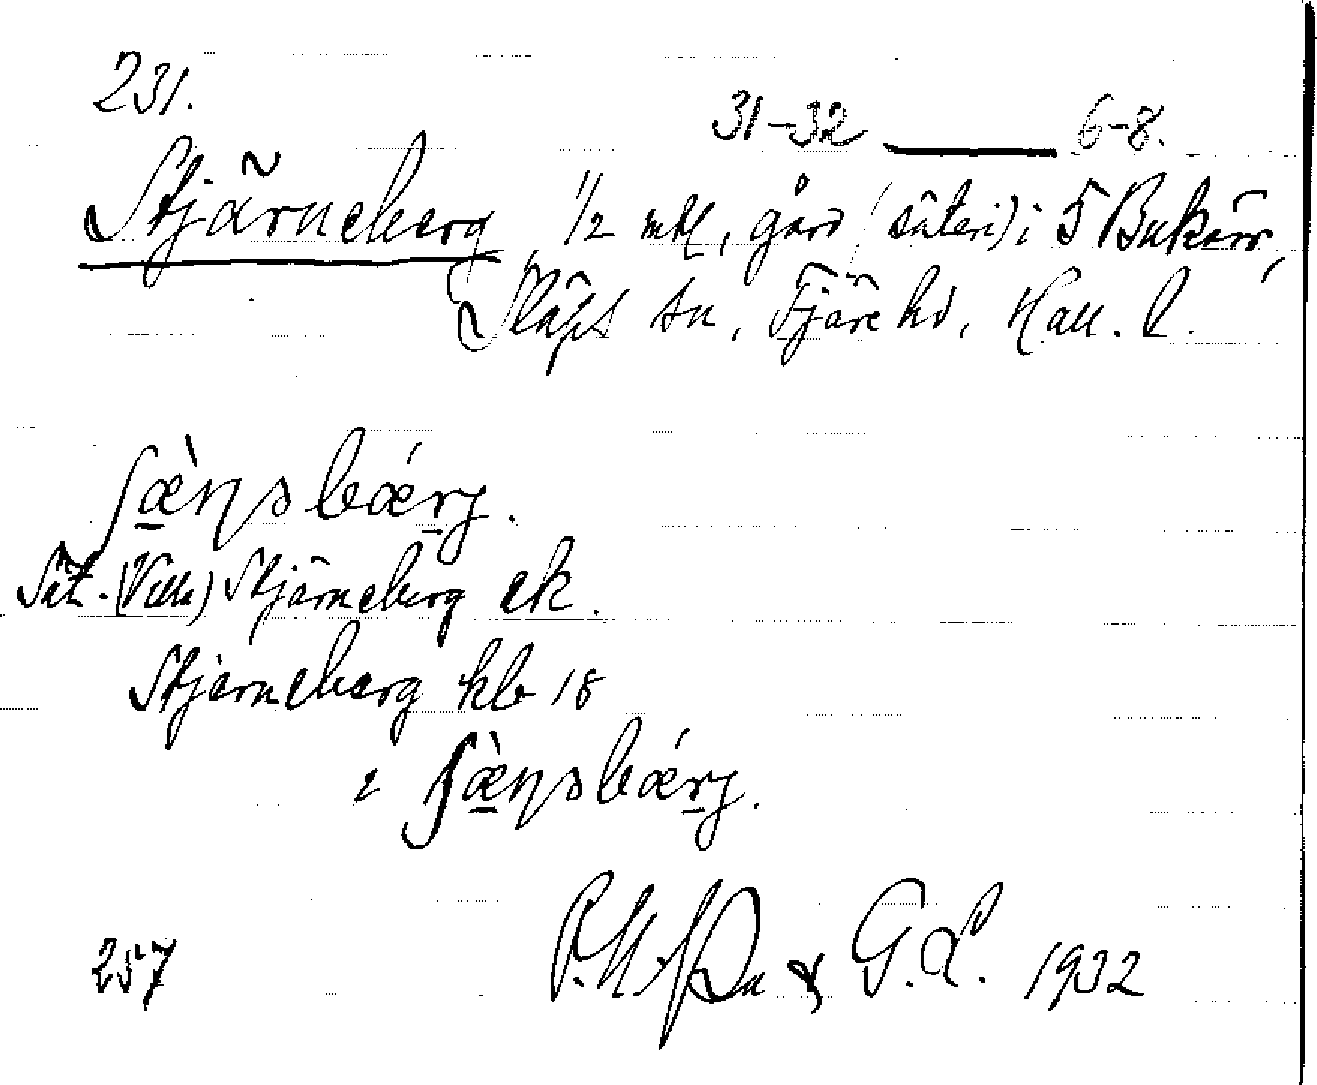 231.
31-32 — 6-8.
Stjärneberg, 1/2 mtl, gård (säteri) i Ö Bukärr,
Släps sn, Fjäre hd, Hall. l.
ʃæ̀ŋsbǽrj.
Sät. (Villa) Stjärneberg ek.
Stjärneberg klb 18
ʃæ̀ŋsbǽrj.
& G.L. 1932
257